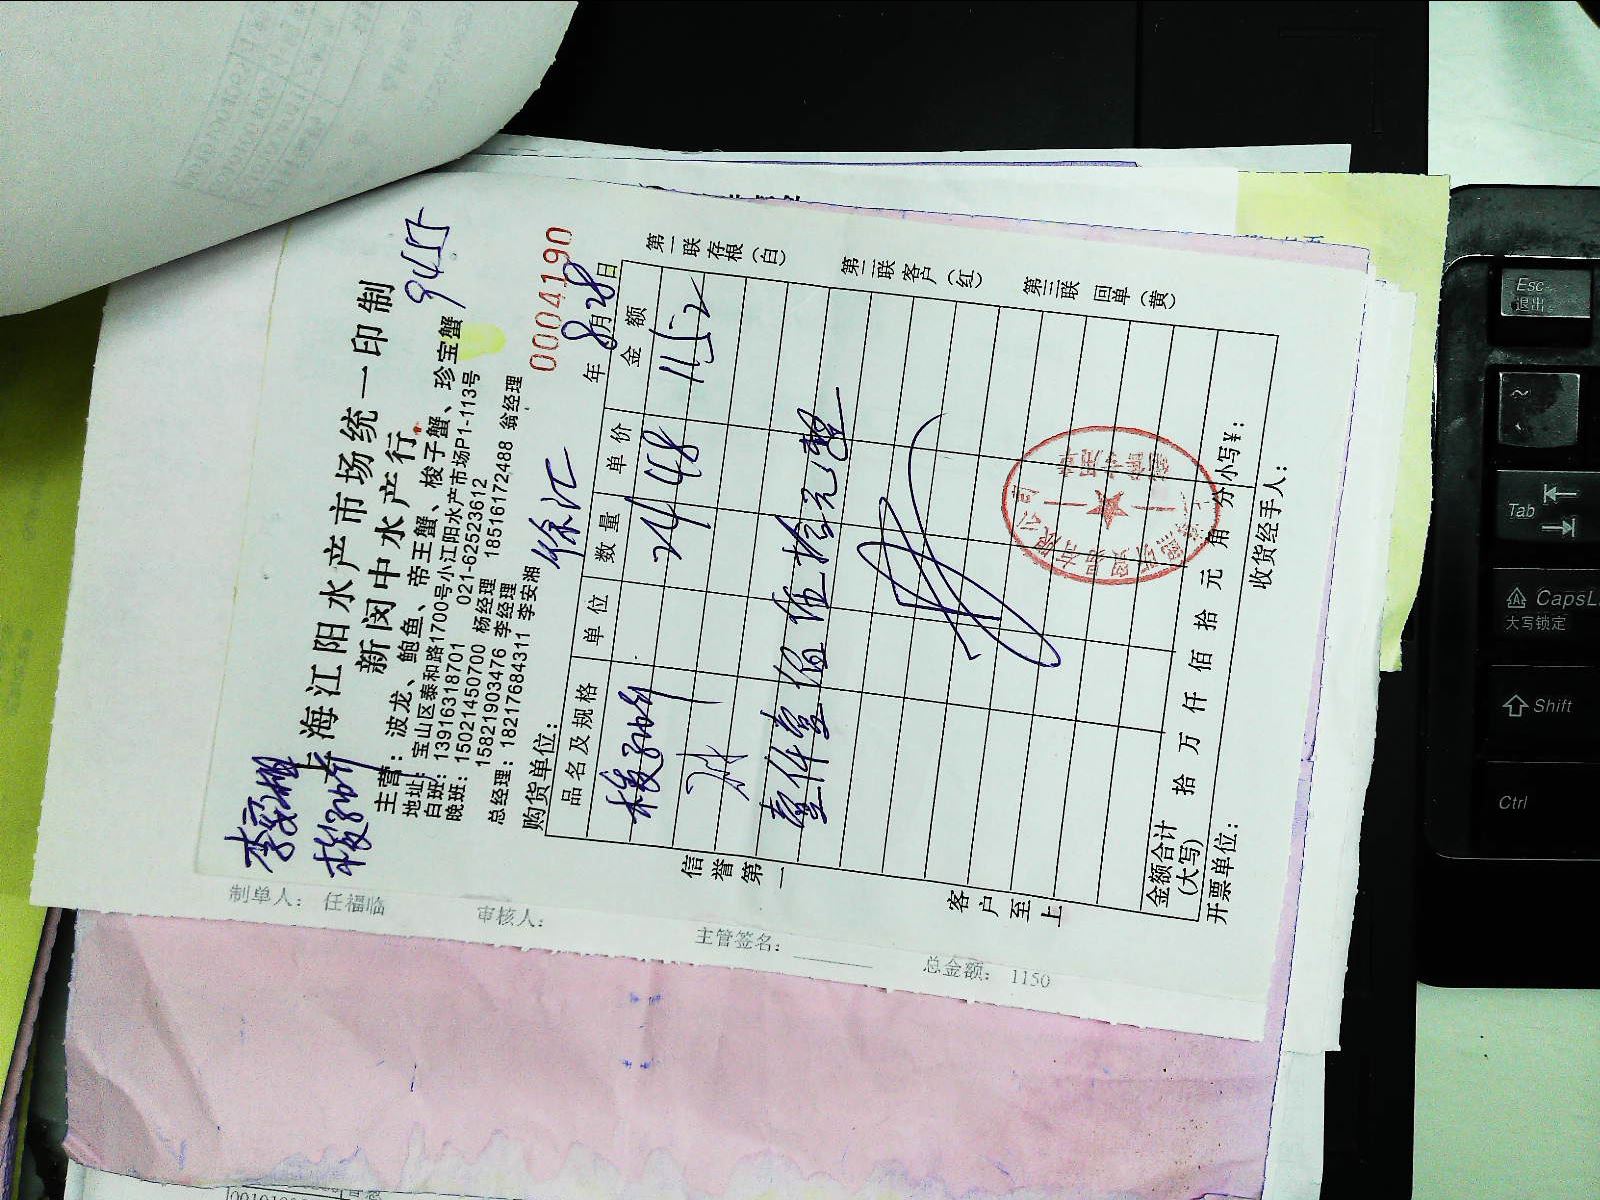 李
梭子蟹
9455
上海江阳水产市场统一印制
新闵中水产行
主营：波龙、鲍鱼、帝王蟹、梭子蟹、珍宝蟹
地址：宝山区泰和路1700号小江阳水产市场P1-113号
白班：13916318701 021-62523612
晚班：15021450700 杨经理 18516172488 翁经理
15821903476 李经理
总经理：18217684311 李安湘
0004190
购货单位： 徐汇 年 8月28日
品名及规格 单位 数量 单价 金额
梭子蟹 24 48 1152
壹仟壹佰伍拾元整
金额合计(大写) 拾 万 仟 佰 拾 元 角 分 小写¥：
开票单位： 收货经手人：
信誉第一
客户至上
第一联存根(白)
第二联客户(红)
第三联回单(黄)
制单人： 任福临
审核人：
主管签名：
总金额： 1150
Esc
退出
Tab
CapsL
大写锁定
Shift
Ctrl